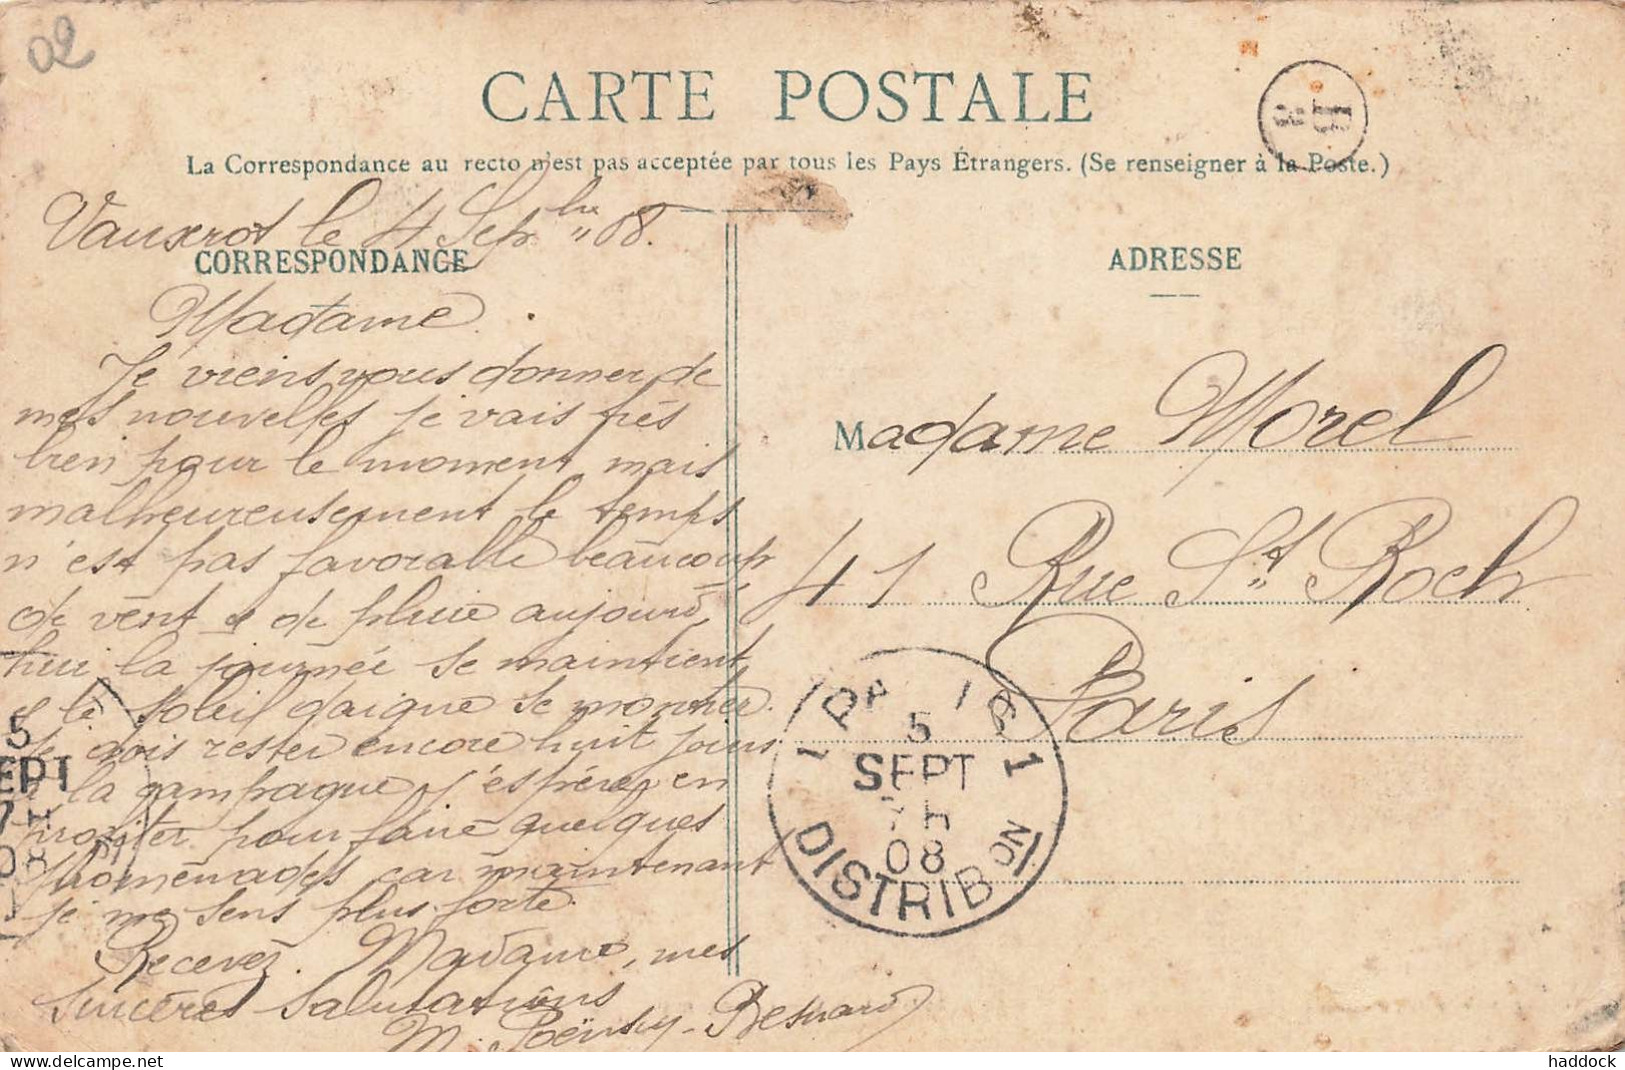 02
CARTE POSTALE
La Correspondance au recto n'est pas acceptée par tous les Pays Étrangers. (Se renseigner à la Poste.)
Vauxerot le 4 Sep bre 08.
CORRESPONDANCE
Madame.
Je viens vous donner de
mes nouvelles je vais très
bien pour le moment mais
malheureusement le temps
n'est pas favorable beaucoup
de vent et de pluie aujourd'
hui la journée se maintient
et le soleil daigne se montrer.
Je dois rester encore huit jours
à la campagne j'espère en
profiter pour faire quelques
promenades car maintenant
je me sens plus forte.
Recevez Madame, mes
sincères salutations
M. Poënsy-Besnard
ADRESSE
Madame Morel
41 Rue St Roch
Paris
5
SEPT
7 H
08
DISTRIB ON
5
EPT
7 H
08
haddock